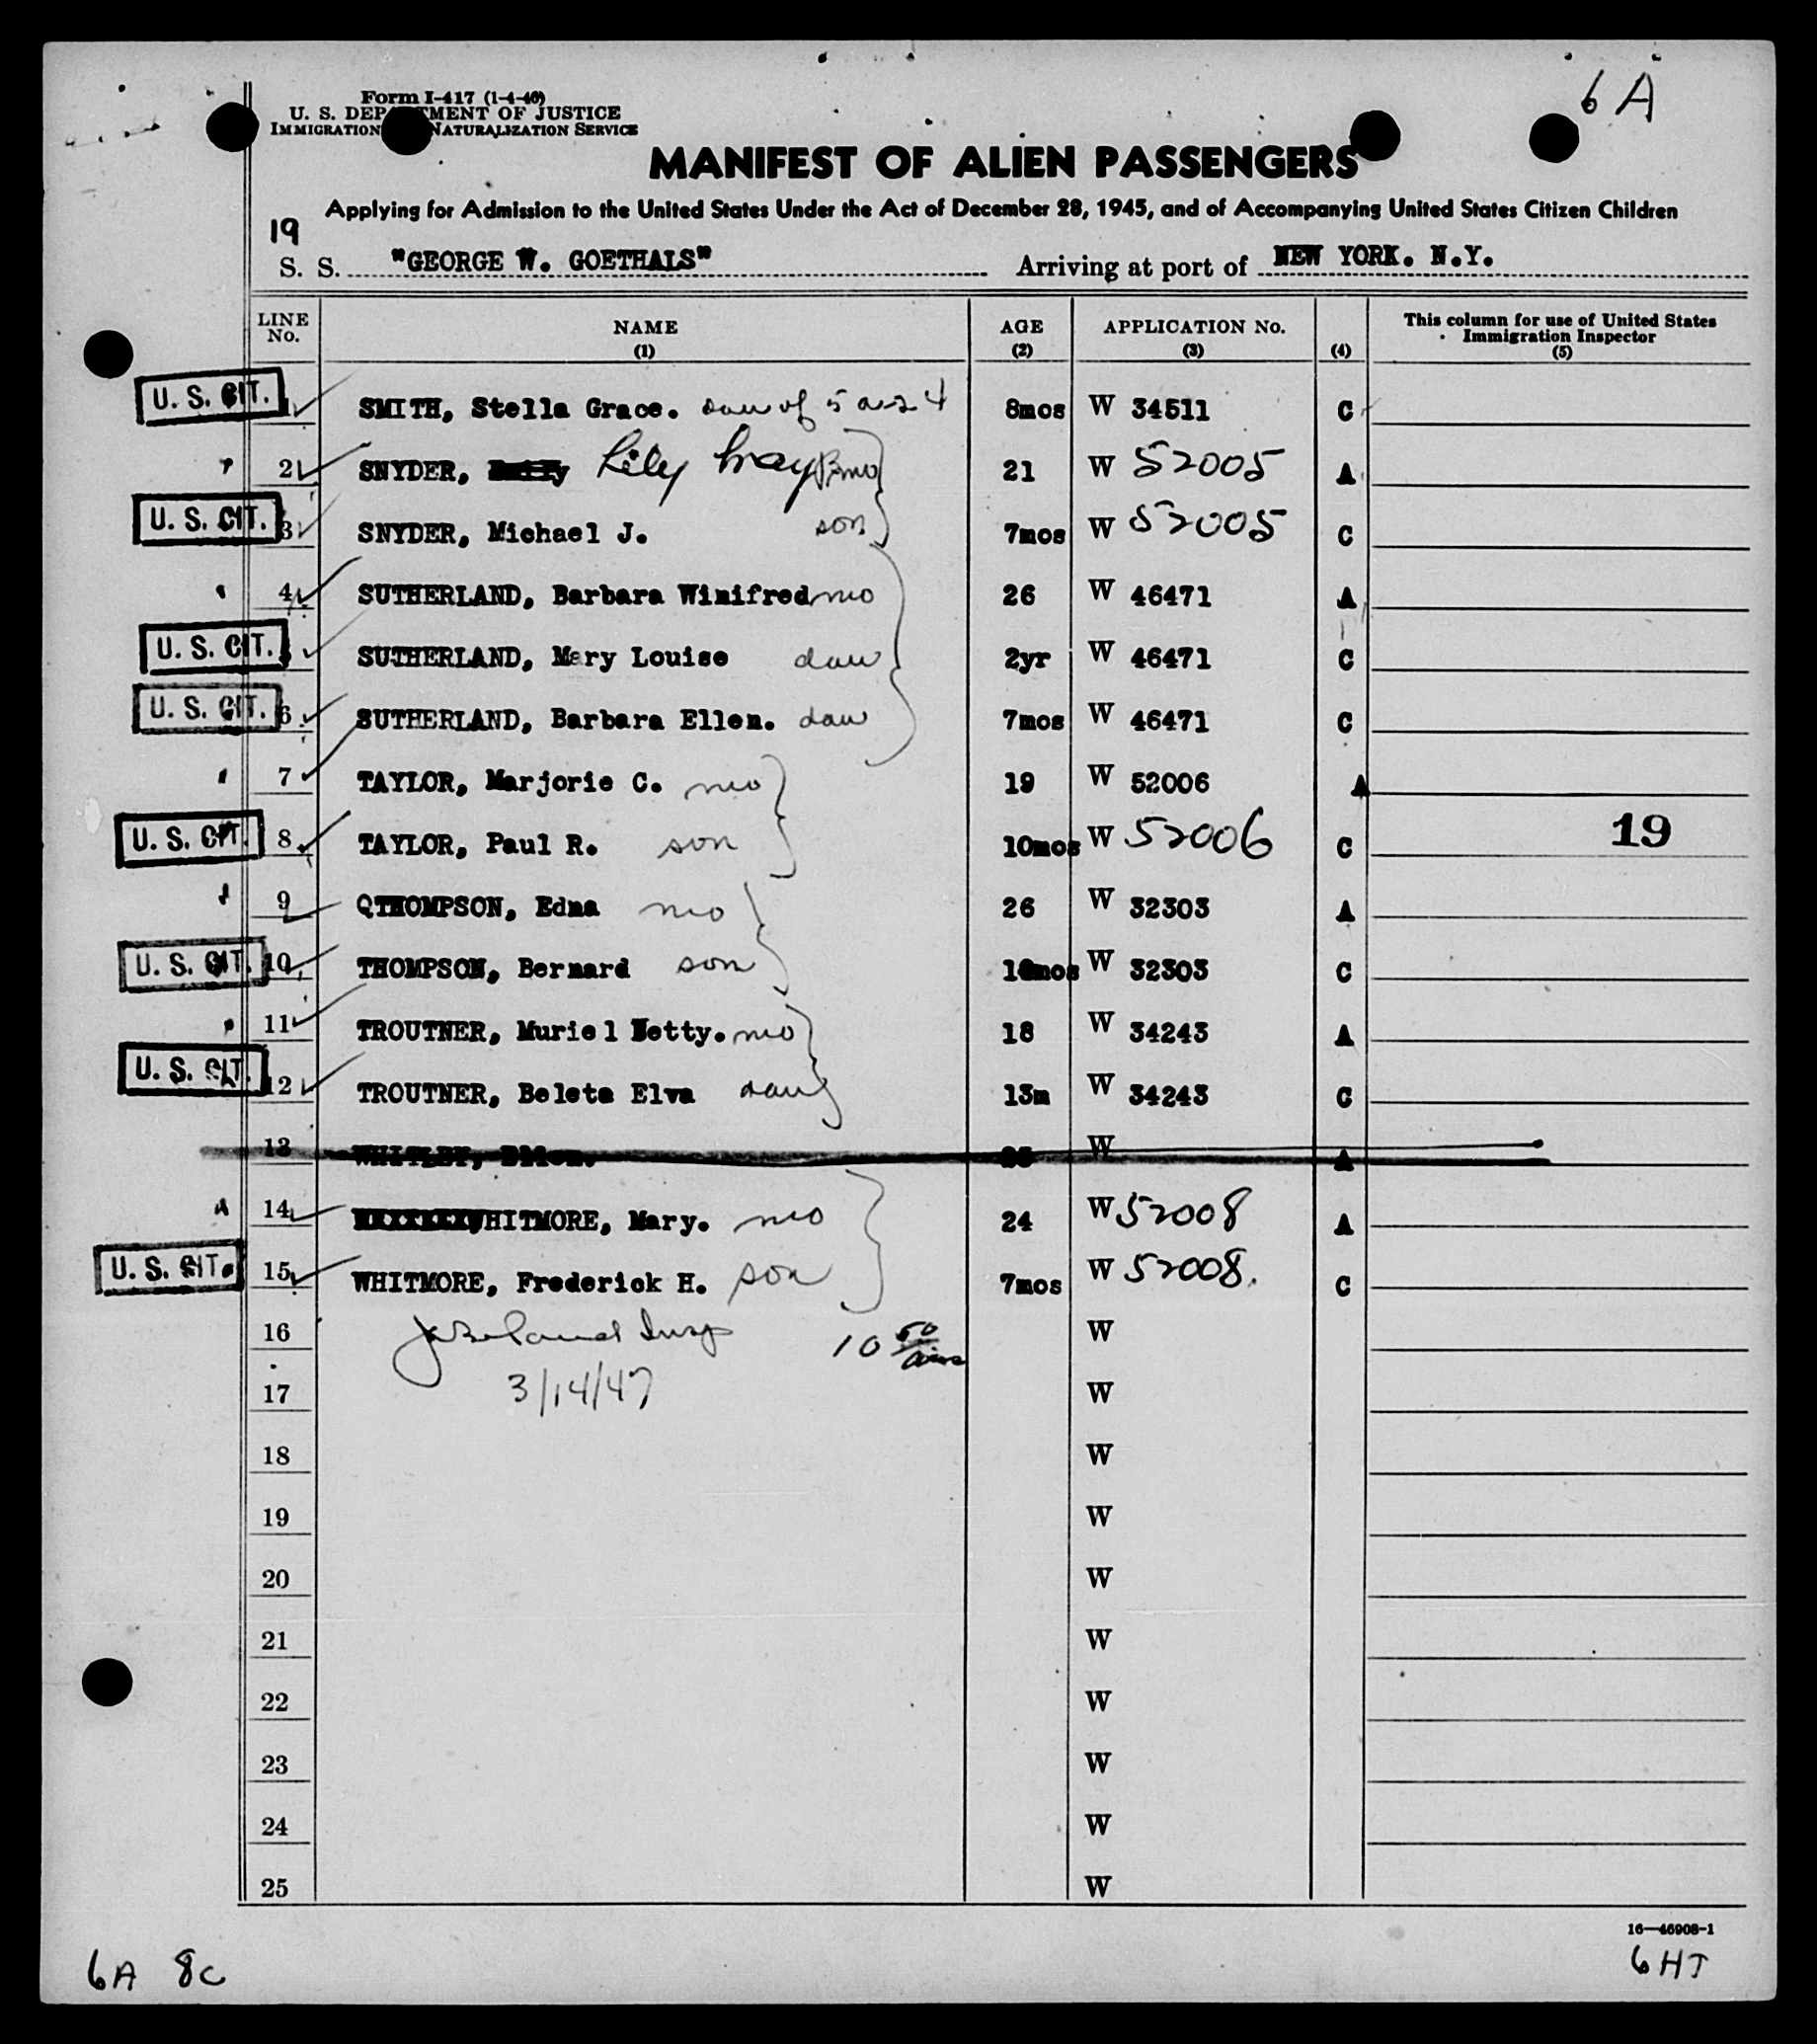 6A
Form I-417 (1-4-46)
U. S. DEPARTMENT OF JUSTICE
IMMIGRATION NATURALIZATION SERVICE
MANIFEST OF ALIEN PASSENGERS
Applying for Admission to the United States Under the Act of December 28, 1945, and of Accompanying United States Citizen Children
19
S. S. "GEORGE W. GOETHALS" Arriving at port of NEW YORK. N.Y.
LINE No. NAME (1) AGE (2) APPLICATION No. (3) (4) This column for use of United States Immigration Inspector (5)
U. S. CIT. 1 SMITH, Stella Grace. dau of 5 a-s 4 8mos W 34511 C
2 SNYDER, Lily May mo 21 W 52005 A
U. S. CIT. 3 SNYDER, Michael J. son 7mos W 52005 C
4 SUTHERLAND, Barbara Winifred mo 26 W 46471 A
U. S. CIT. SUTHERLAND, Mary Louise dau 2yr W 46471 C
U. S. CIT. 6 SUTHERLAND, Barbara Ellen. dau 7mos W 46471 C
7 TAYLOR, Marjorie C. mo 19 W 52006 A
U. S. CIT. 8 TAYLOR, Paul R. son 10mos W 52006 C 19
9 QTHOMPSON, Edna mo 26 W 32303 A
U. S. CIT. 10 THOMPSON, Bernard son 18mos W 32303 C
11 TROUTNER, Muriel Hetty. mo 18 W 34243 A
U. S. CIT. 12 TROUTNER, Beleta Elva dau 13m W 34243 C
13 WHITLEY, Ellen. W A
14 WHITMORE, Mary. mo 24 W 52008 A
U. S. CIT. 15 WHITMORE, Frederick H. son 7mos W 52008. C
16 Insp 10 50 W
17 3/14/47 W
18 W
19 W
20 W
21 W
22 W
23 W
24 W
25 W
16—46908-1
6A 8C 6HJ